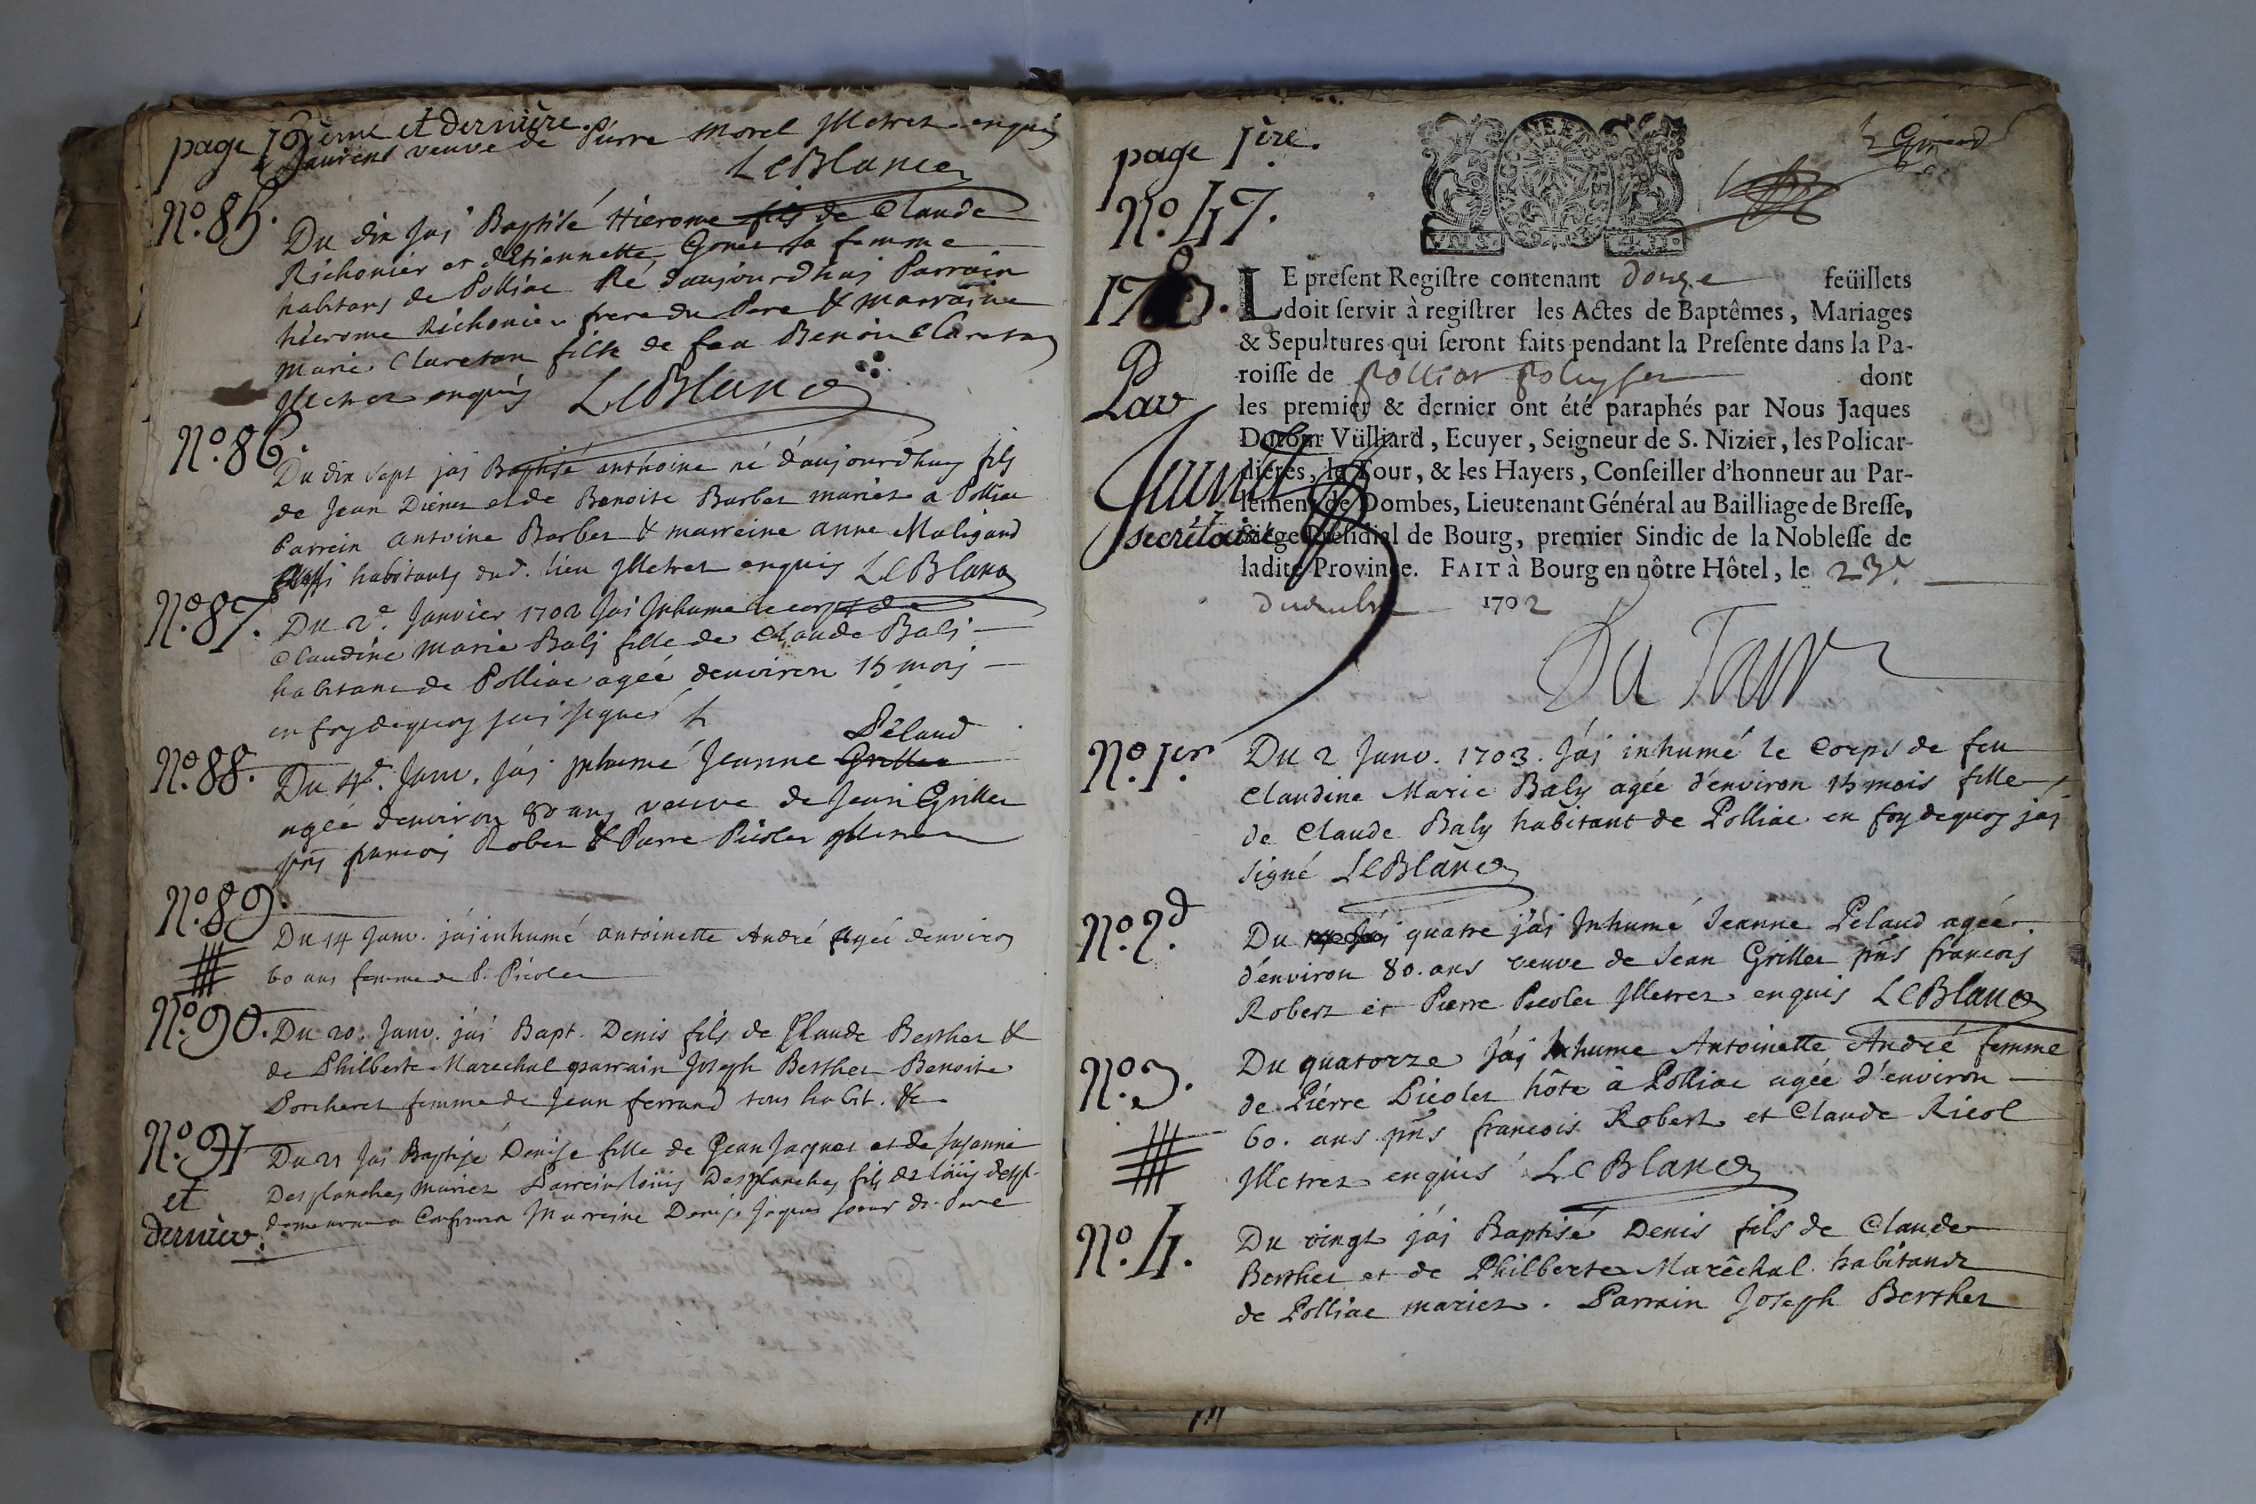 page 18ème et dernière.
Laurens veuve de Pierre Morel Illetrez enquis
LeBlanc
No. 85.
Du dix Jai Baptisé Hierome fils de Claude
Richonier et d'Etiennette Gonet sa femme
habitans de Polliac Né d'aujourdhui Parrain
hierome Richonier frere du Pere & marraine
Marie Claretan fille de feu Benoit Claretan
Illetrez enquis LeBlanc
No. 86.
Du dix sept jai Baptisé anthoine né d'aujourdhuy fils
de Jean Diénet et de Benoite Barbet mariez a Polliac
Parrein antoine Barbet & marreine anne Maligand
aussi habitants dud. lieu Illetrez enquis LeBlanc
No. 87.
Du 2e. Janvier 1703 Jai Inhumé le corps de
Claudine Marie Bali fille de Claude Bali
habitant de Polliac agée denviron 15 mois
en foy dequoy jai signé
No. 88.
Pélaud
Du 4e. Janv. jai inhumé Jeanne Grillet
agée denviron 80 ans veuve de Jean Grillet
pñs francois Robert & Pierre Picolet Illetrez
No. 89.
Du 14 Janv. jai inhumé antoinette André agée denviron
60 ans femme de P. Picolet
No. 90.
Du 20. Janv. jai Bapt. Denis fils de Claude Berthet &
de Philberte Marechal parrain Joseph Berthet Benoite
Porcheret femme de Jean ferrand tous habit. &c
No. 91
et
dernier.
Du 21 Jai Baptisé Denise fille de Jean Jaques et de Susanne
Desplanches mariez Parrein louis Desplanches fils de louis despl.
demeurant a Confrancon Marreine Denise Jaques soeur du Pere
page 1ère.
Giraud
No. 47.
GEN
VN S. 4 D.
LE present Registre contenant douze feüillets
doit servir à registrer les Actes de Baptêmes, Mariages
& Sepultures qui seront faits pendant la Presente dans la Pa-
roisse de polliat dont
les premier & dernier ont été paraphés par Nous Jaques
Dutour Vülliard, Ecuyer, Seigneur de S. Nizier, les Policar-
dières, le Tour, & les Hayers, Conseiller d'honneur au Par-
lement de Dombes, Lieutenant Général au Bailliage de Bresse,
Siège Présidial de Bourg, premier Sindic de la Noblesse de
ladite Province. FAIT à Bourg en nôtre Hôtel, le 23e
decembre 1702
Par
secrétaire
Du Tour
No. 1er
Du 2 Janv. 1703. J'ai inhumé le Corps de feu
Claudine Marie Baly agée d'environ 15 mois fille
de Claude Baly habitant de Polliac en foy dequoy jai
signé LeBlanc
No. 2d.
Du quatre j'ai Inhumé Jeanne Pelaud agée
d'environ 80. ans veuve de Jean Grillet pñs francois
Robert et Pierre Picolet Illetrez enquis LeBlanc
No. 3.
Du quatorze J'ai Inhume Antoinette André femme
de Pierre Picolet hôte à Polliac agée d'environ
60. ans pñs francois Robert et Claude Ricol
Illetrez enquis LeBlanc
No. 4.
Du vingt j'ai Baptisé Denis fils de Claude
Berthet et de Philberte Maréchal habitans
de Polliac mariez. Parrain Joseph Berthet